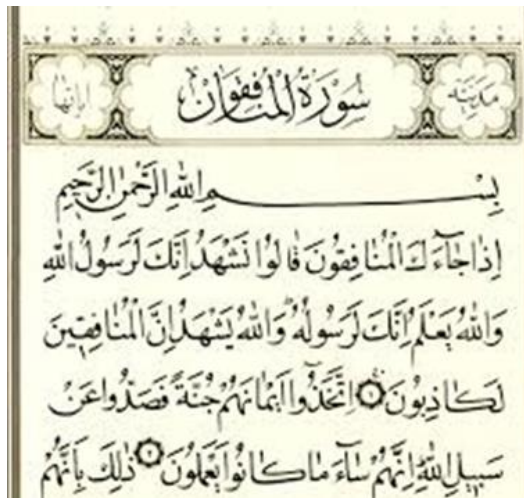 مدنية سورة المنافقون اياتها
بِسْمِ اللهِ الرَّحْمٰنِ الرَّحِيمِ
اِذَا جَاءَكَ الْمُنَافِقُونَ قَالُوا نَشْهَدُ اِنَّكَ لَرَسُولُ اللهِ
وَاللهُ يَعْلَمُ اِنَّكَ لَرَسُولُهُ وَاللهُ يَشْهَدُ اِنَّ الْمُنَافِقِينَ
لَكَاذِبُونَ ١ اِتَّخَذُوا اَيْمَانَهُمْ جُنَّةً فَصَدُّوا عَنْ
سَبِيلِ اللهِ اِنَّهُمْ سَاءَ مَا كَانُوا يَعْمَلُونَ ٢ ذٰلِكَ بِاَنَّهُمْ